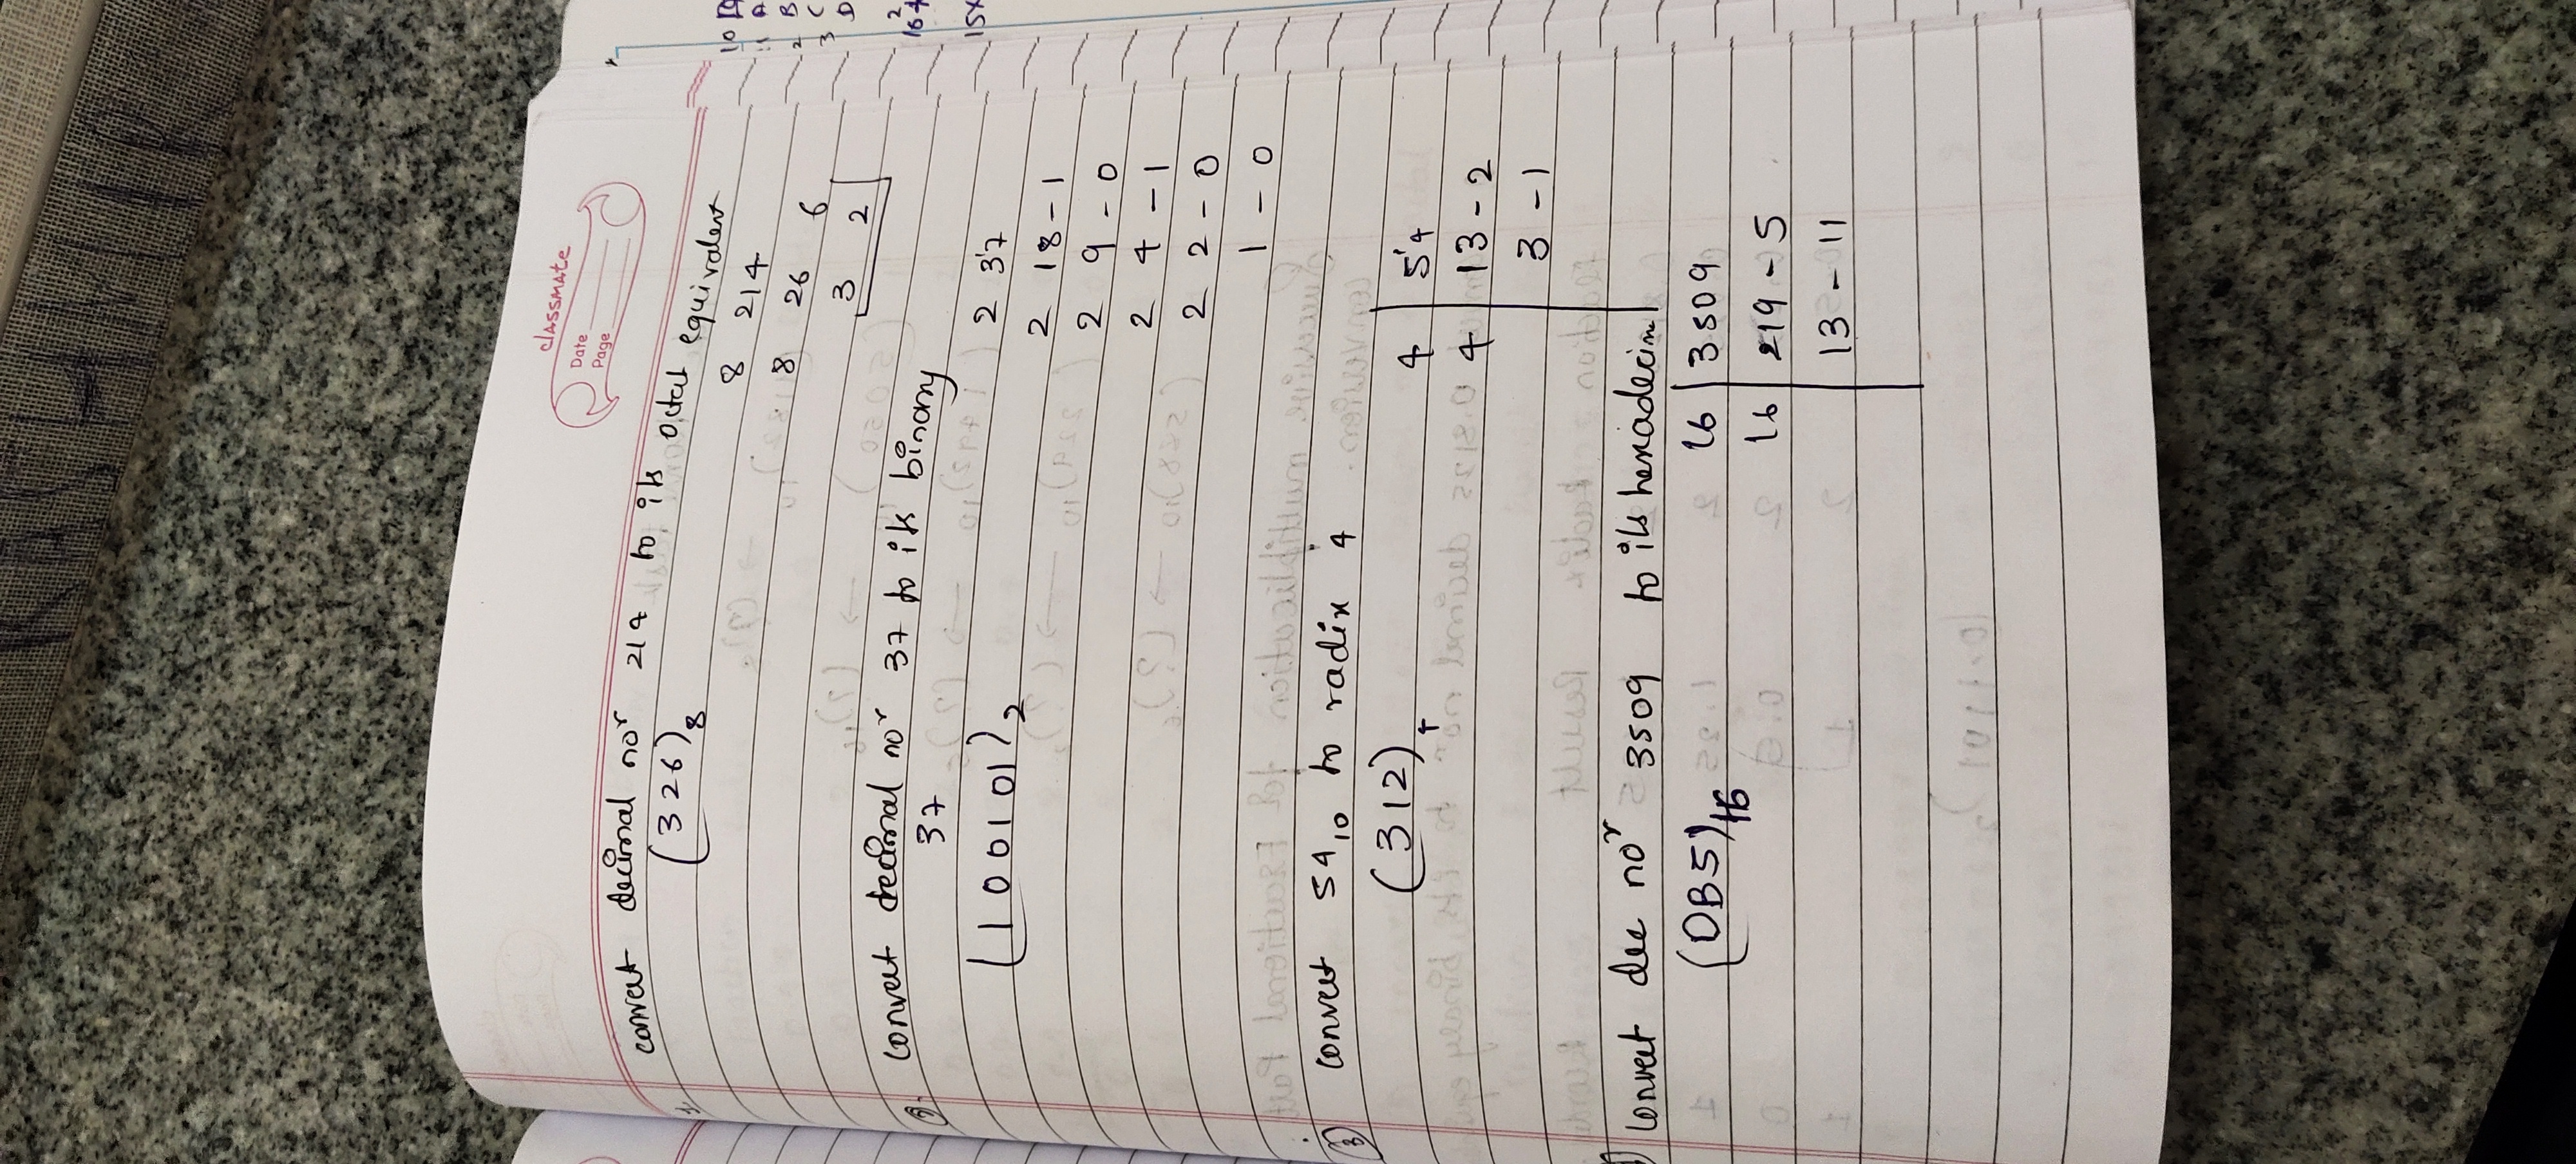 KASHMIR
classmate
Date
Page
1. convert decimal nor 214 to its octal equivalent
(326)8
8 214
8 26 6
3 2
2. convert decimal nor 37 to its binary
37
(100101)2
2 37
2 18-1
2 9-0
2 4-1
2 2-0
1-0
3 convert 5410 to radix 4
(312)4
4 54
4 13-2
3-1
convert dec nor 3509 to its hexadeciml
(DB5)16
16 3509
16 219-5
13-11
10
A
B
C
D